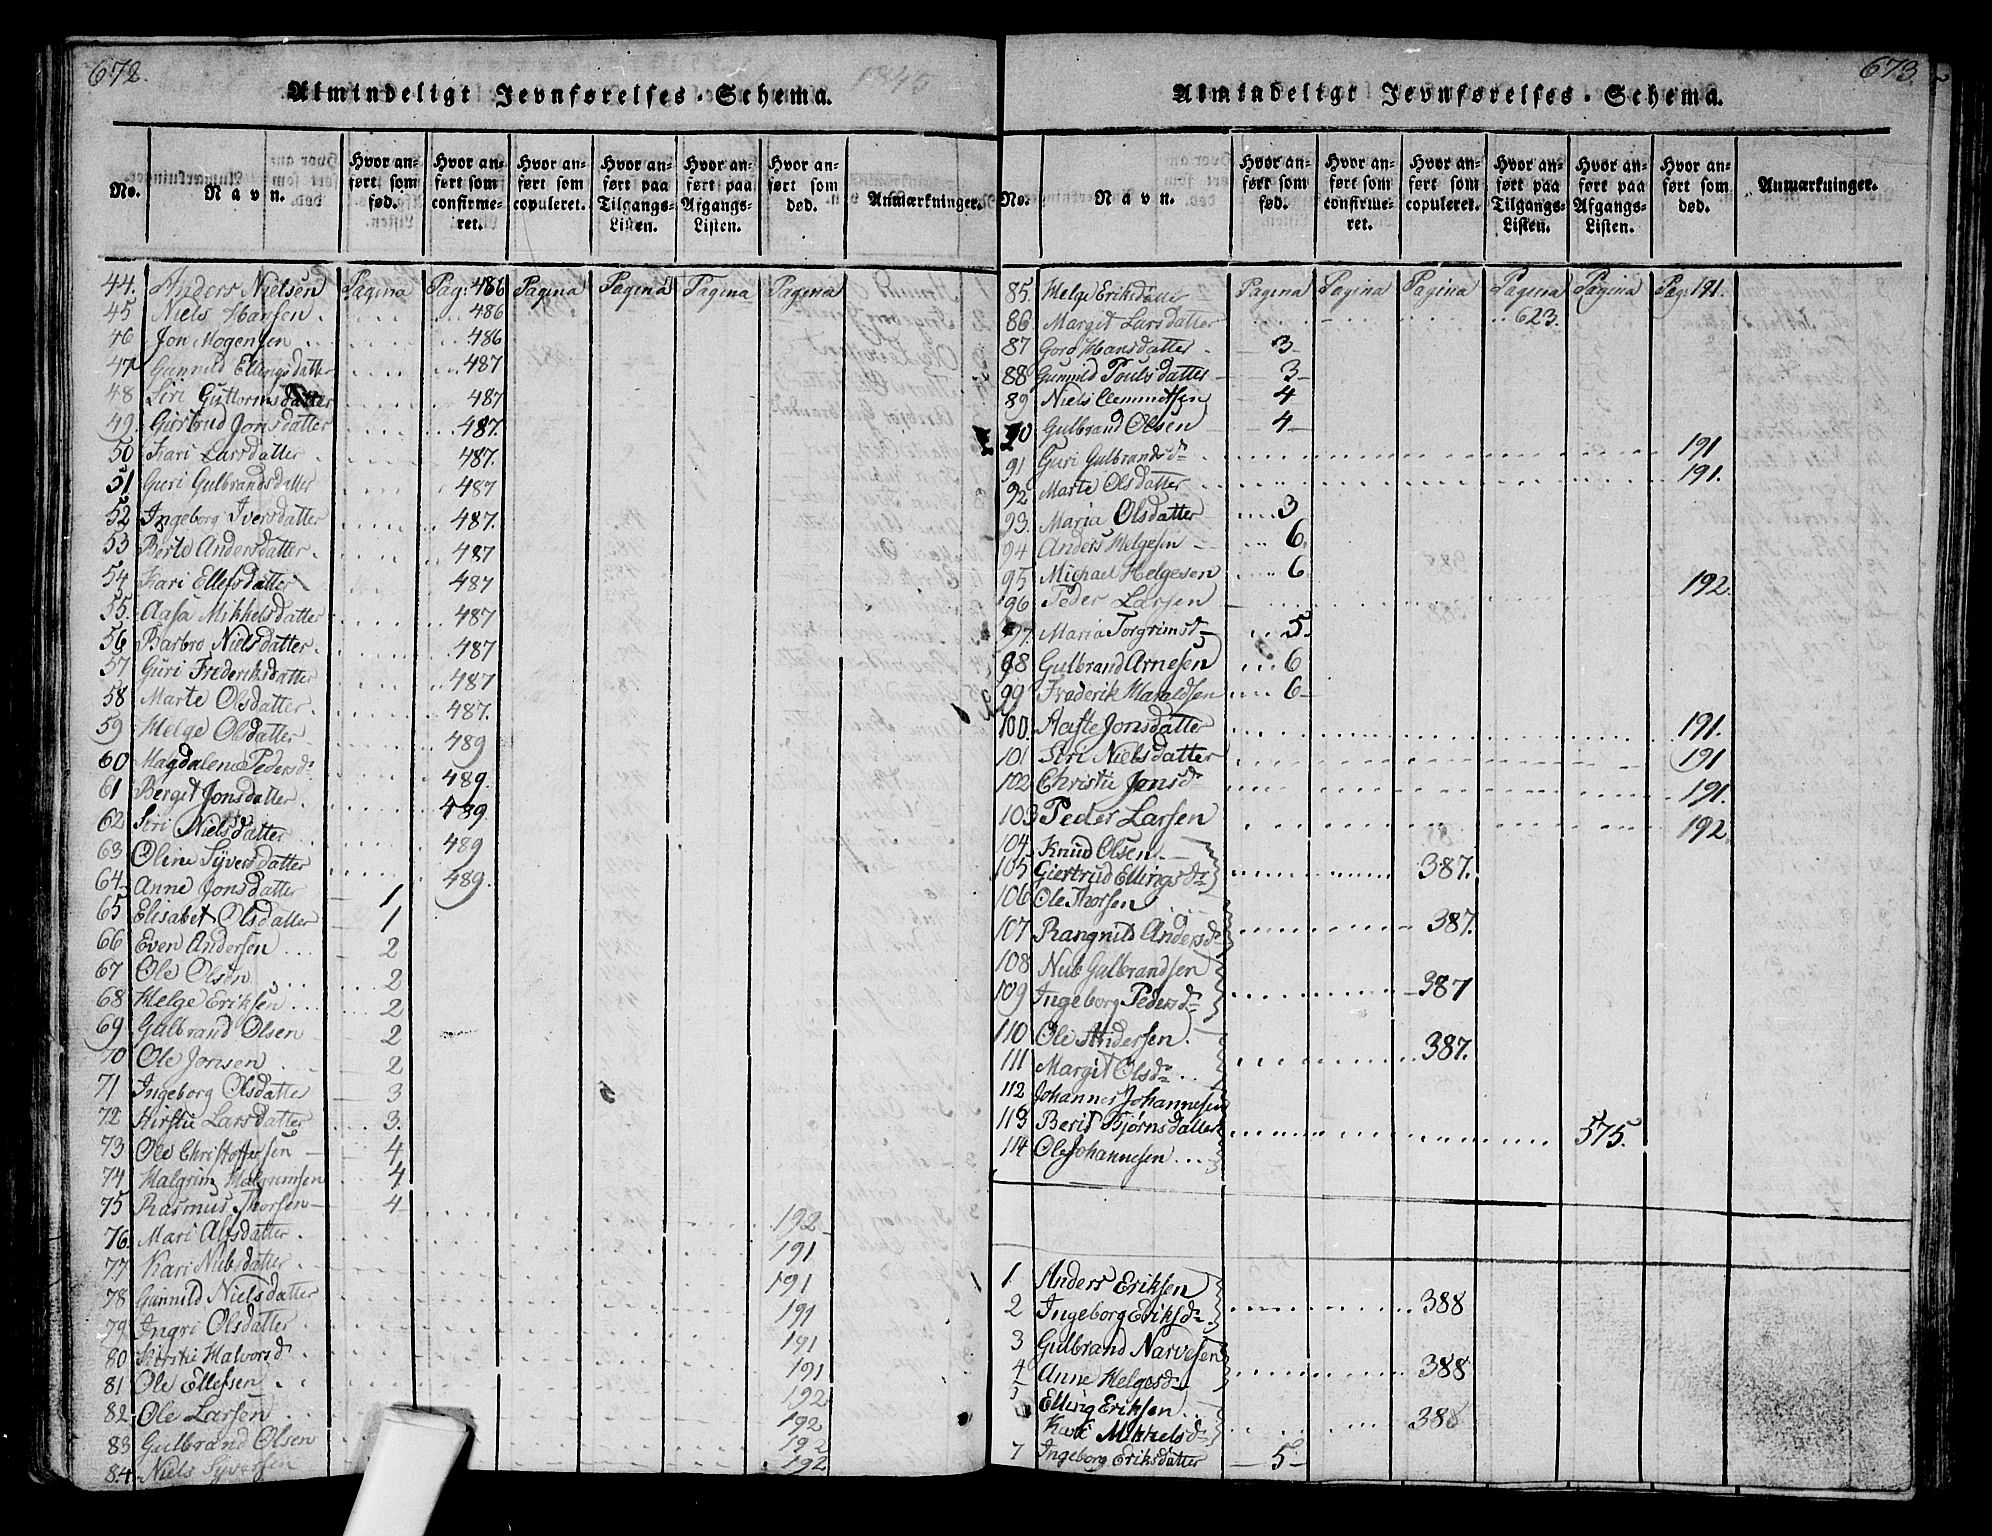 672.
Almindeligt Jevnførelses-Schema.
No.
Navn.
Hvor anført som fød.
Hvor anført som confirmeret.
Hvor anført som copuleret.
Hvor anført paa Tilgangs-Listen.
Hvor anført paa Afgangs-Listen.
Hvor anført som død.
Anmærkninger.
44. Anders Nielsen Pagina Pag: 486 Pagina Pagina Pagina Pagena
45 Niels Hansen 486
46 Jon Mogensen 486
47 Gunnild Ellingsdatter 487
48 Siri Guttormsdatter 487
49. Giertrud Jonsdatter 487.
50 Kari Larsdatter 487.
51 Guri Gulbrandsdatter 487
52 Ingeborg Iversdatter 487.
53 Berte Andersdatter 487
54 Kari Ellefsdatter 487
55. Aasa Mikkelsdatter 487
56 Barbro Nielsdatter 487
57 Guri Frederiksdatter 487
58 Marte Olsdatter 487.
59 Helge Olsdatter 489
60 Magdalene Pedersd: 489.
61 Berget Jonsdatter 489
62 Siri Nielsdatter 489
63 Olene Syversdatter 489.
64 Anne Jonsdatter 1
65 Elisabet Olsdatter 1
66 Even Andersen 2
67 Ole Olsen 2
68 Helge Eriksen 2
69 Gulbrand Olsen 2
70 Ole Jonsen 2
71 Ingeborg Olsdatter 3
72 Kirstie Larsdatter 3.
73 Ole Christoffersen 4
74 Halgrim Halgrimsen 4
75 Rasmus Thorsen 4
76. Mari Alfsdatter 192
77 Kari Nielsdatter 191
78 Gunnild Nielsdatter 191
79 Ingri Olsdatter 191
80 Kirstie Halvorsd 191
81 Ole Ellefsen 191
82 Ole Larsen 192
83 Gulbrand Olsen 192
84 Niels Syversen 192
673.
Almindeligt Jevnførelses-Schema.
No.
Navn.
Hvor anført som fød.
Hvor anført som confirmeret.
Hvor anført som copuleret.
Hvor anført paa Tilgangs-Listen.
Hvor anført paa Afgangs-Listen.
Hvor anført som død.
Anmærkninger.
85. Helge Eriksdatter Pagina Pagina Pagina Pagina Pagina Pag: 191.
86 Margit Larsdatter 623.
87 Goro Hansdatter 3
88 Gunnild Poulsdatter 3
89 Niels Clemmetsen 4
90 Gulbrand Olsen 4
91 Guri Gulbrandsd: 191
92 Marte Olsdatter 191.
93. Maria Olsdatter 3
94 Anders Helgesen 6
95 Michael Helgesen 6
96 Peder Larsen 192
97. Maria Torgrimsd: 5
98 Gulbrand Arnesen 6
99 Frederik Haraldsen 6
100. Aaste Jonsdatter 191.
101 Siri Nielsdatter 191
102 Christie Jonsd: 191.
103 Peder Larsen 192
104. Knud Olsen
105 Giertrud Ellingsd: 387.
106 Ole Thorsen
107 Rangnild Andersd: 387.
108 Niels Gulbrandsen
109 Ingeborg Pedersd: 387
110 Ole Andersen
111 Margit Olsd: 387.
112 Johannes Johannesen
113 Berit Bjørnsdatter 575.
114 Ole Johannesen
1. Anders Eriksen
2 Ingeborg Eriksd: 388
3 Gulbrand Narvesen
4 Anne Helgesd: 388
Elling Eriksen
Kari Mikkelsd: 388
7 Ingeborg Eriksdatter 5